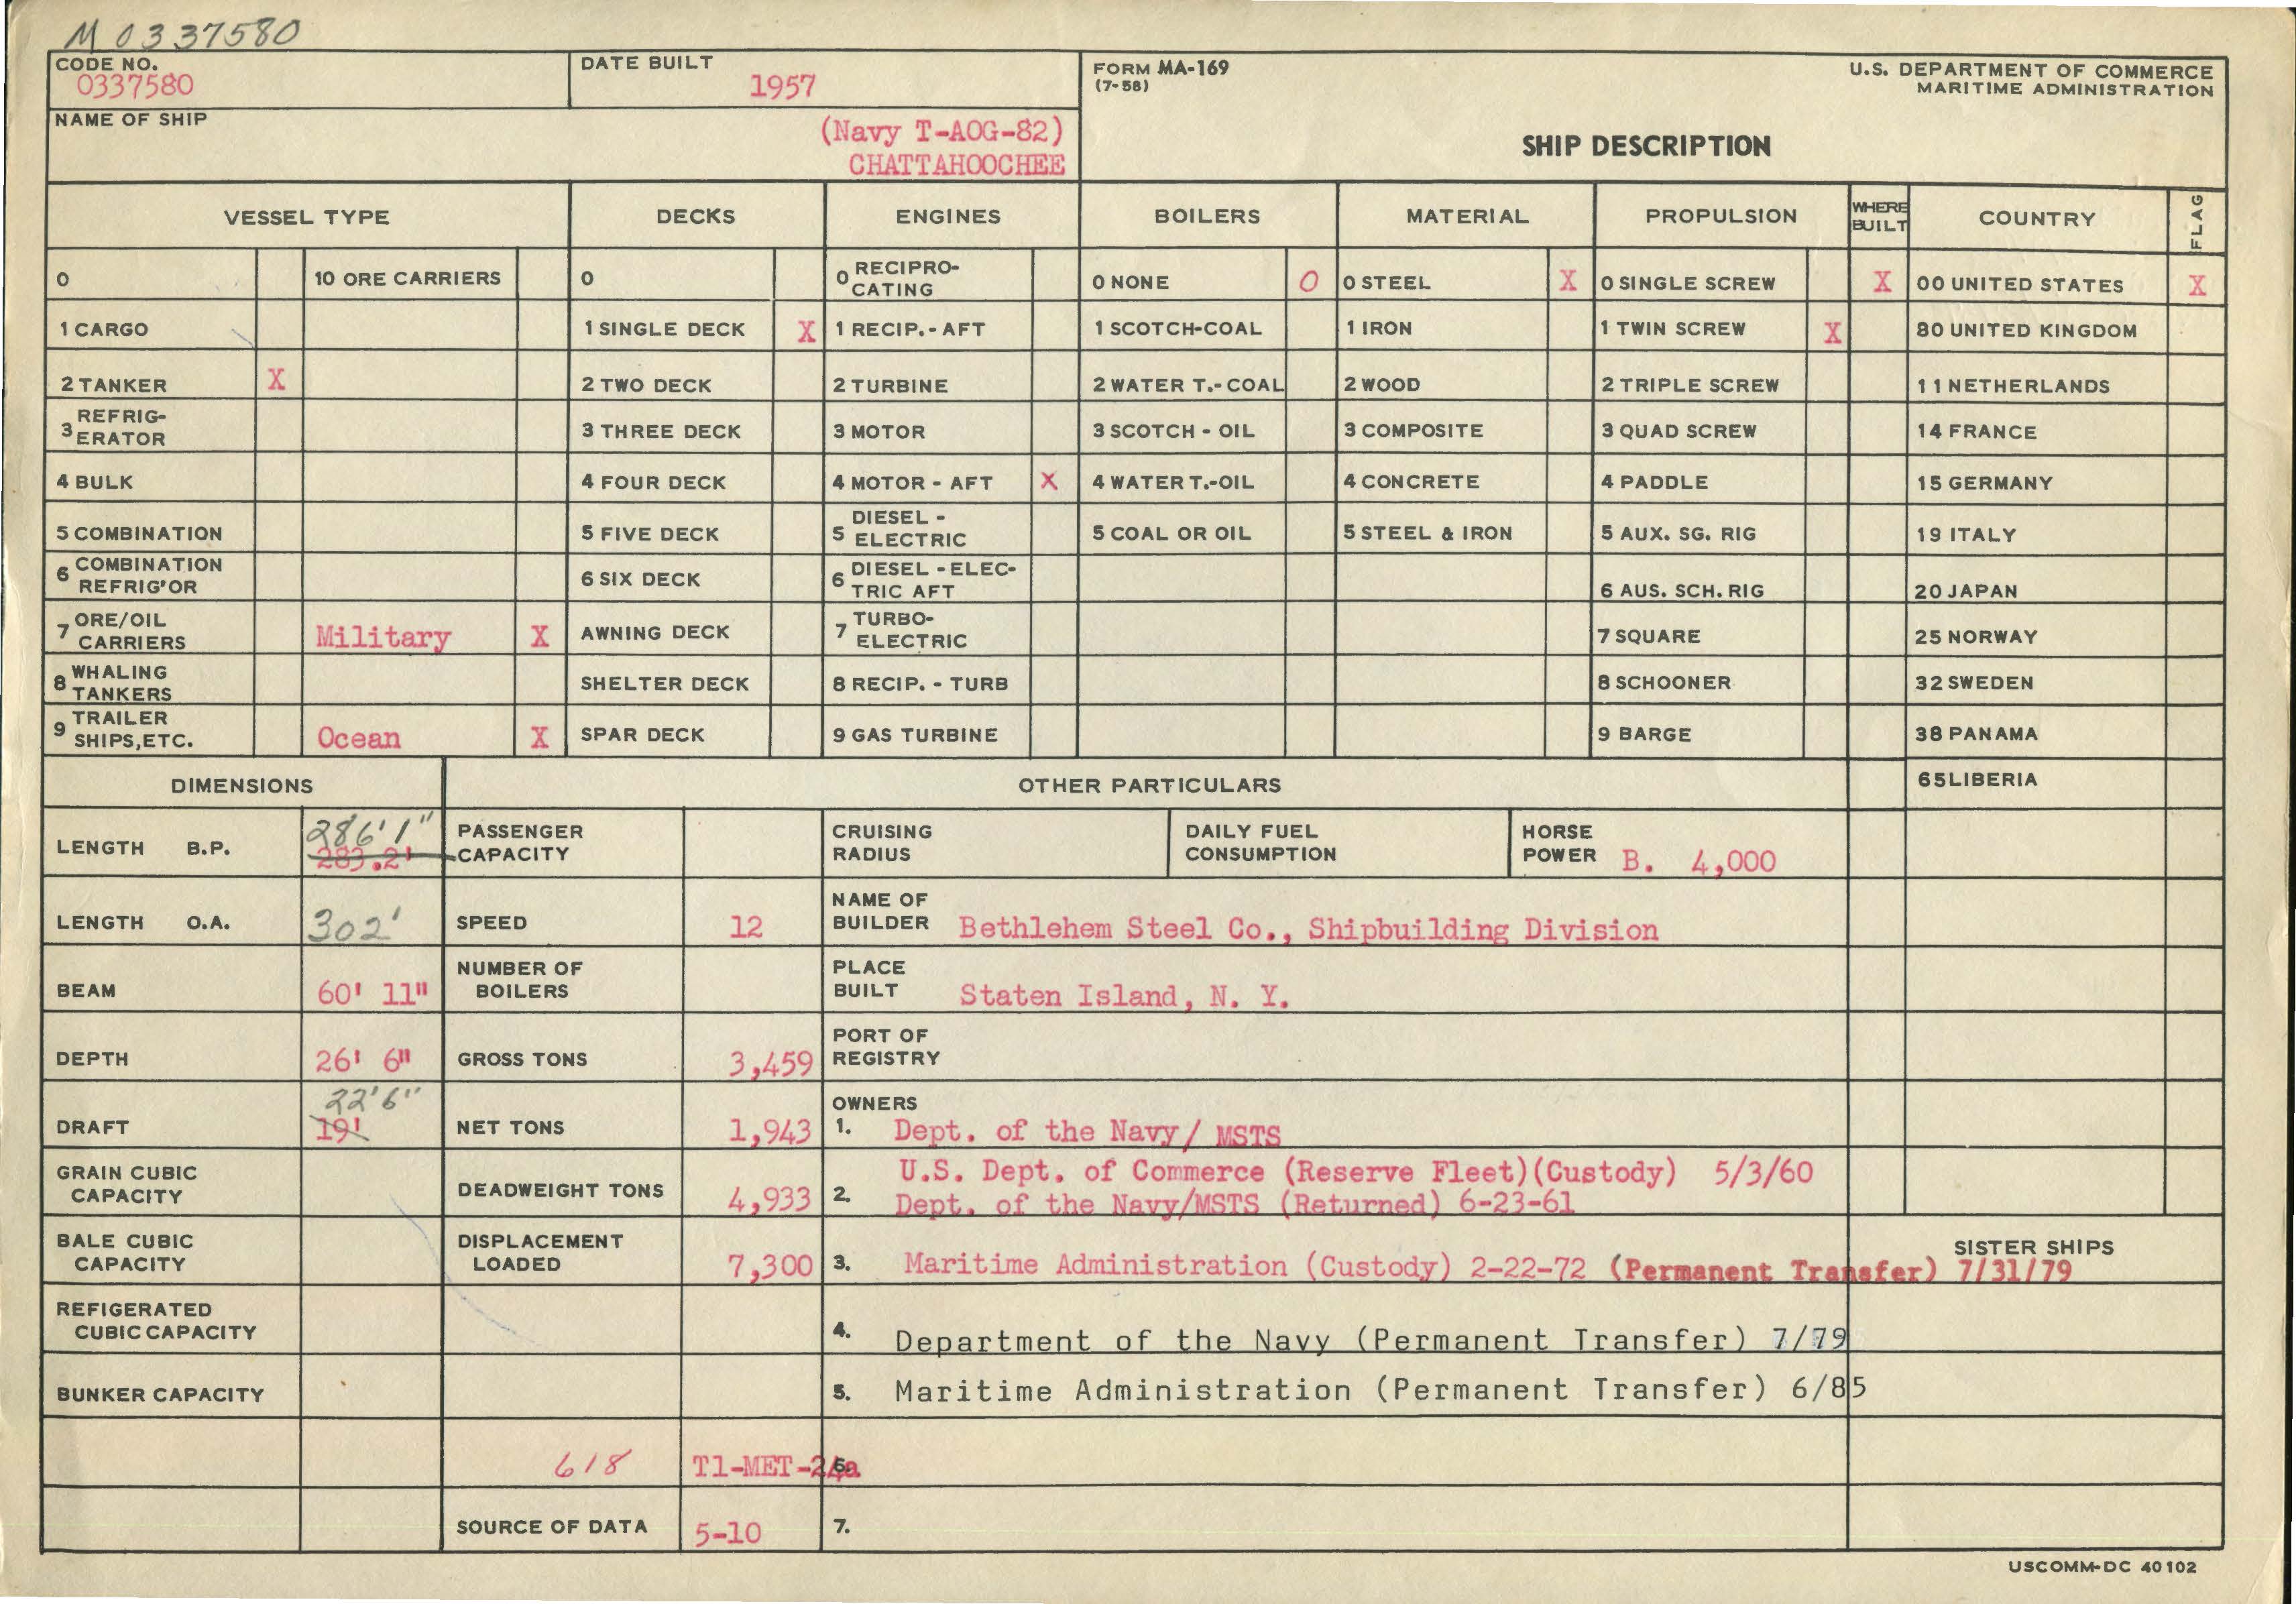 M 0337580
CODE NO. 0337580
DATE BUILT 1957
FORM MA-169
(7-58)
U.S. DEPARTMENT OF COMMERCE
MARITIME ADMINISTRATION
NAME OF SHIP
(Navy T-AOG-82)
CHATTAHOOCHEE
SHIP DESCRIPTION
VESSEL TYPE DECKS ENGINES BOILERS MATERIAL PROPULSION WHERE BUILT COUNTRY FLAG
0 10 ORE CARRIERS 0 0 RECIPRO-CATING 0 NONE O 0 STEEL X 0 SINGLE SCREW X 00 UNITED STATES X
1 CARGO 1 SINGLE DECK X 1 RECIP.- AFT 1 SCOTCH-COAL 1 IRON 1 TWIN SCREW X 80 UNITED KINGDOM
2 TANKER X 2 TWO DECK 2 TURBINE 2 WATER T.- COAL 2 WOOD 2 TRIPLE SCREW 11 NETHERLANDS
3 REFRIG-ERATOR 3 THREE DECK 3 MOTOR 3 SCOTCH - OIL 3 COMPOSITE 3 QUAD SCREW 14 FRANCE
4 BULK 4 FOUR DECK 4 MOTOR - AFT X 4 WATER T.-OIL 4 CONCRETE 4 PADDLE 15 GERMANY
5 COMBINATION 5 FIVE DECK 5 DIESEL - ELECTRIC 5 COAL OR OIL 5 STEEL & IRON 5 AUX. SG. RIG 19 ITALY
6 COMBINATION REFRIG'OR 6 SIX DECK 6 DIESEL - ELEC-TRIC AFT 6 AUS. SCH. RIG 20 JAPAN
7 ORE/OIL CARRIERS Military X AWNING DECK 7 TURBO-ELECTRIC 7 SQUARE 25 NORWAY
8 WHALING TANKERS SHELTER DECK 8 RECIP. - TURB 8 SCHOONER 32 SWEDEN
9 TRAILER SHIPS,ETC. Ocean X SPAR DECK 9 GAS TURBINE 9 BARGE 38 PANAMA
DIMENSIONS OTHER PARTICULARS 65 LIBERIA
LENGTH B.P. 286'1" 283.2' PASSENGER CAPACITY CRUISING RADIUS DAILY FUEL CONSUMPTION HORSE POWER B. 4,000
LENGTH O.A. 302' SPEED 12 NAME OF BUILDER Bethlehem Steel Co., Shipbuilding Division
BEAM 60' 11" NUMBER OF BOILERS PLACE BUILT Staten Island, N. Y.
DEPTH 26' 6" GROSS TONS 3,459 PORT OF REGISTRY
DRAFT 22'6" 19' NET TONS 1,943 OWNERS 1. Dept. of the Navy/ MSTS
GRAIN CUBIC CAPACITY DEADWEIGHT TONS 4,933 2. U.S. Dept. of Commerce (Reserve Fleet)(Custody) 5/3/60
Dept. of the Navy/MSTS (Returned) 6-23-61
BALE CUBIC CAPACITY DISPLACEMENT LOADED 7,300 3. Maritime Administration (Custody) 2-22-72 (Permanent Transfer) 7/31/79 SISTER SHIPS
REFIGERATED CUBIC CAPACITY 4. Department of the Navy (Permanent Transfer) 7/79
BUNKER CAPACITY 5. Maritime Administration (Permanent Transfer) 6/85
618 T1-MET-24a 6.
SOURCE OF DATA 5-10 7.
USCOMM-DC 40102